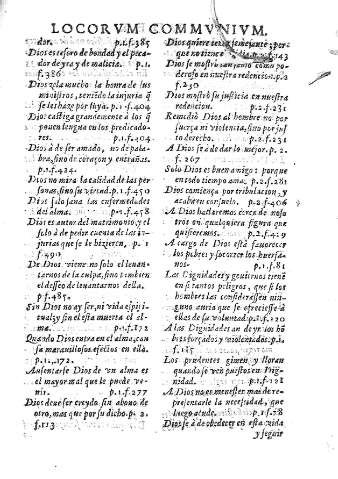 LOCORVM COMMVNIVM.
dor. p.1.f.385
Dios es tesoro de bondad y el peca-
dor de yra y de malicia. p.1.
f.386
Dios zela mucho la honra de sus
ministros, la injuria q̃
se les haze por suya. p.1.f.404
Dios castiga grauemente a los q̃
ponen lengua en los predicado-
res. p.1.f.404
Dios à de ser amado, no de pala-
bra, sino de coraçon y entrañas.
p.1.f.424.
Dios no mira la calidad de las per
sonas, sino su virtud. p.1.f.450
Dios solo sana las enfermedades
del alma. p.1.f.458
Dios es autor del matrimonio, y el
solo à de pedir cuenta de las in-
jurias que se le hizieren. p.1
f.490
De Dios viene no solo el leuan-
tarnos de la culpa, sino tambien
el desseo de leuantarnos della.
p.f.485.
Sin Dios no ay ser, ni vida espiri-
tual; y sin el esta muerta el al-
ma. p.1.f.172
Quando Dios entra en el alma, con
sa marauillosos efetos en ella.
p.1.172.
Ausentarse Dios de vn alma es
el mayor mal que le puede ve-
nir. p.1.f.277
Dios deue ser creydo sin abono de
otro, mas que por su dicho. p.2.
f.113
Dios quiere ser semejante; por
que no tiene f.243
Dios se mostro tan como po
deroso en nuestra redencion. p.2
f.230
Dios mostro su justicia en nuestra
redencion. p.2.f.231
Remedió Dios al hombre no por
fuerza ni violencia, sino por ju
sto derecho. p.2.f.231
A Dios se à de dar lo mejor. p.2.
f.267
Solo Dios es buen amigo: porque
en todo tiempo ama. p.2.f.281
Dios comiença por tribulacion, y
acaba en consuelo. p.2.f.406
A Dios hallaremos cerca de noso
tros en qualquiera figura que
quisieremos. p.2.f.431
A cargo de Dios està fauorecer
los pobres y socorrer los huerfa-
nos. p.1.f.81
Las Dignidades y gouiernos tienē
en si tantos peligros, que si los
hombres las considerassen nin-
guno auria que se ofreciesse à
ellas de su voluntad. p.1.f.120
A las Dignidades an de yr los hō
bres forçados, y violentados. p.1.
f.115
Los prudentes gimen y lloran
quando se ven puestos en Dig-
nidad. p.1.f.121
A Dios no es menester mas de re-
presentarle la necesidad, que
luego atude. p.1.f.78
Dios se à de obedecer en esta vida
y seguir